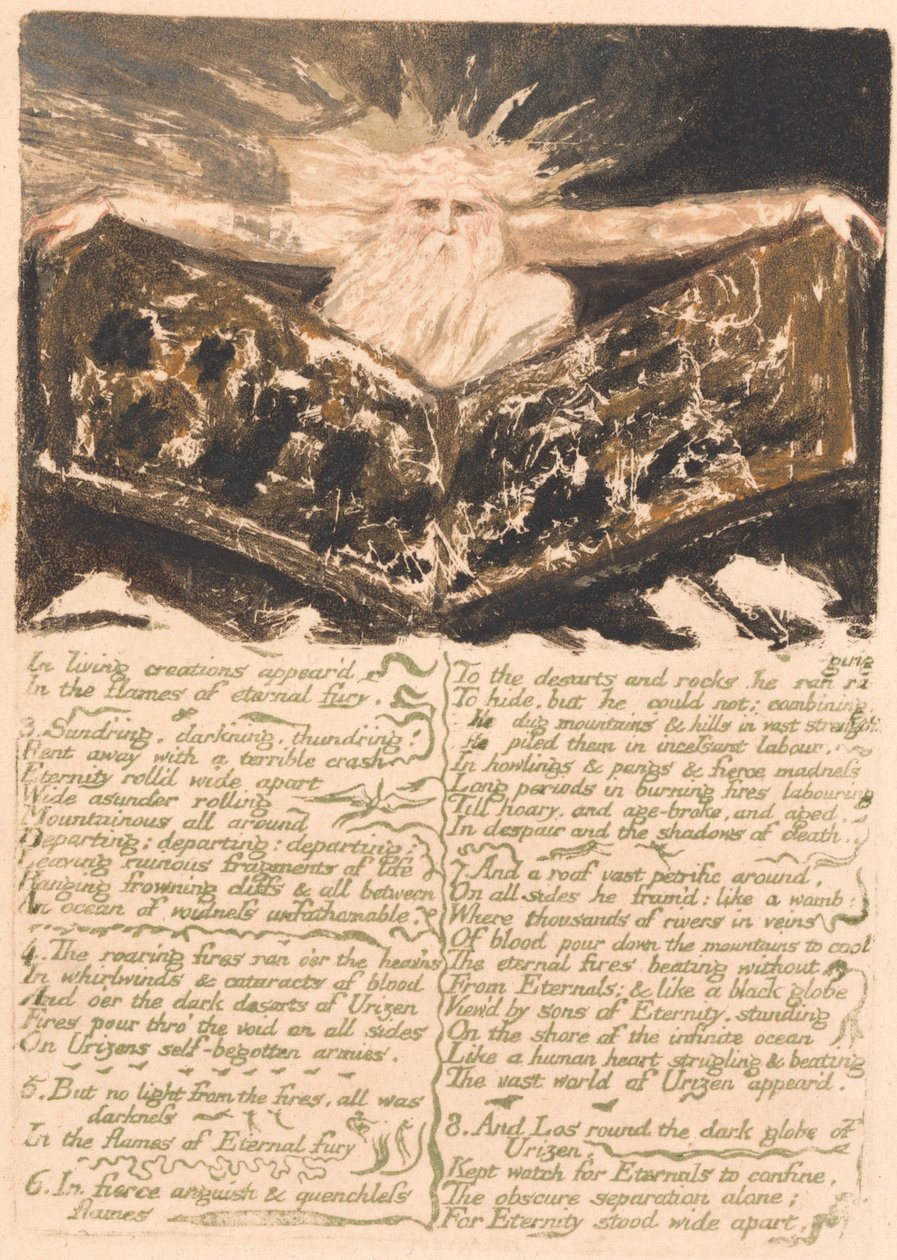 In living creations appear'd
In the flames of eternal fury.
3. Sundring, darkning, thundring!
Rent away with a terrible crash
Eternity roll'd wide apart
Wide asunder rolling
Mountainous all around
Departing; departing; departing:
Leaving ruinous fragments of life
Hanging frowning cliffs & all between
An ocean of voidness unfathomable.
4. The roaring fires ran o'er the heav'ns
In whirlwinds & cataracts of blood
And o'er the dark desarts of Urizen
Fires pour thro' the void on all sides
On Urizens self-begotten armies.
5. But no light from the fires, all was
darkness
In the flames of Eternal fury
6. In fierce anguish & quenchless
flames
ging
To the desarts and rocks he ran ra
To hide, but he could not; combining
He dug mountains & hills in vast strength
He piled them in incessant labour,
In howlings & pangs & fierce madness
Long periods in burning fires labouring
Till hoary, and age-broke, and aged,
In despair and the shadows of death.
7. And a roof vast petrific around,
On all sides he fram'd: like a womb;
Where thousands of rivers in veins
Of blood pour down the mountains to cool
The eternal fires beating without
From Eternals; & like a black globe
View'd by sons of Eternity, standing
On the shore of the infinite ocean
Like a human heart strugling & beating
The vast world of Urizen appear'd.
8. And Los round the dark globe of
Urizen,
Kept watch for Eternals to confine,
The obscure separation alone;
For Eternity stood wide apart,